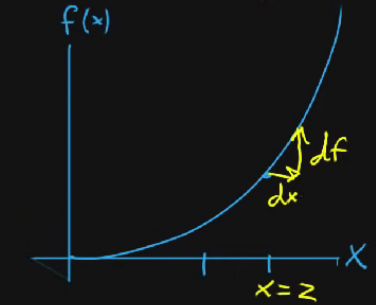 f(x)
df
dx
X
x=2